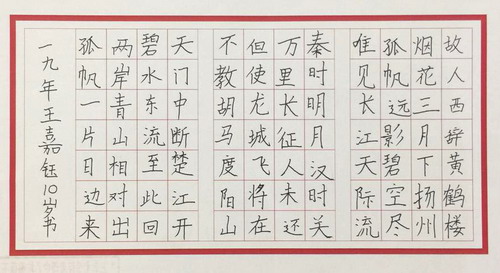 故人西辞黄鹤楼
烟花三月下扬州
孤帆远影碧空尽
唯见长江天际流
秦时明月汉时关
万里长征人未还
但使龙城飞将在
不教胡马度阳山
天门中断楚江开
碧水东流至此回
两岸青山相对出
孤帆一片日边来
一九年王嘉钰10岁书